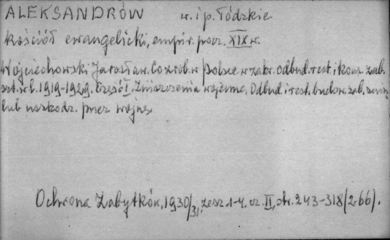 ALEKSANDRÓW w. i p. Łódzkie
kościół ewangelicki, empir. pocz. XIX w.
Wojciechowski Jarosław. Co zrob. w Polsce w zakr. odbud. rest. i kons. zab.
szt. w l. 1919-1929. Część I. Zniszczenia wojenne. Odbud. i rest. budow. zab. zniszcz.
lub uszkodz. przez wojnę
Ochrona Zabytków, 1930/31, zesz. 1-4, cz. II, str. 243-318 (266).